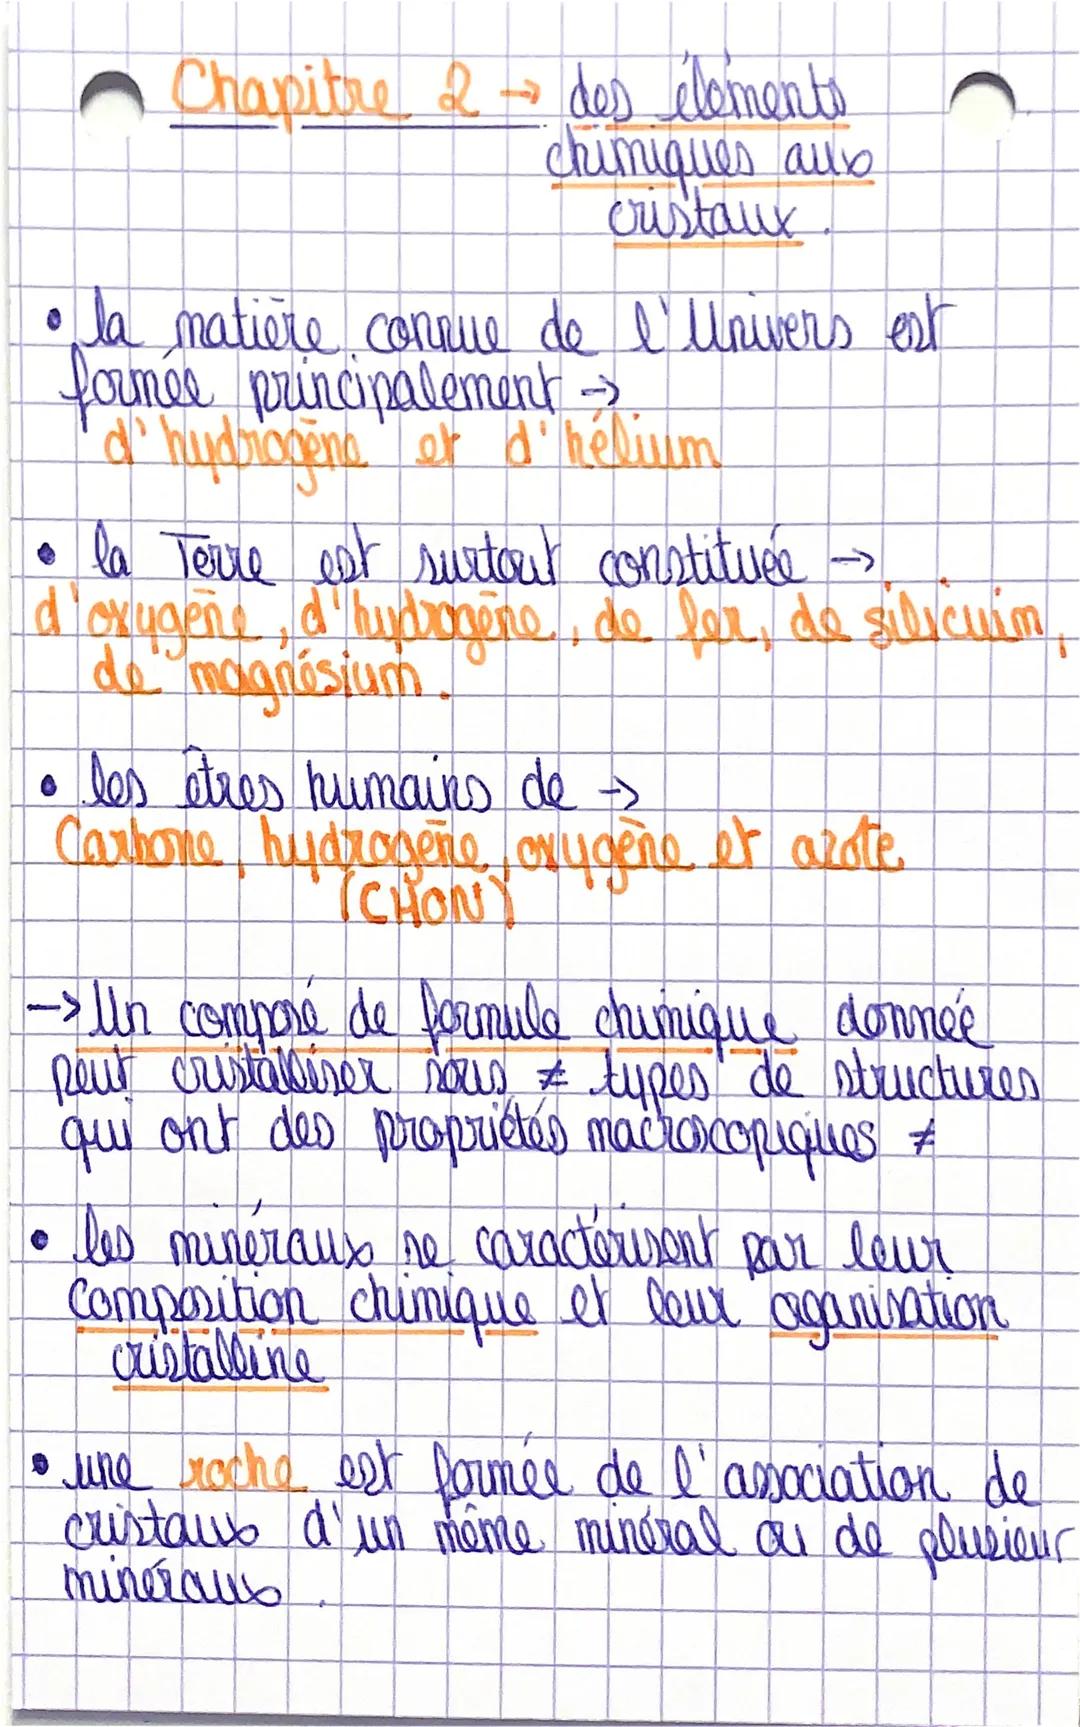 Chapitre 2 → des éléments
chimiques aux
cristaux.
• la matière connue de l'Univers est
formée principalement →
d'hydrogène et d'hélium
• la Terre est surtout constituée →
d'oxygène, d'hydrogène, de fer, de silicium,
de magnésium.
• les êtres humains de →
Carbone, hydrogène, oxygène et azote
(CHON)
→ Un composé de formule chimique donnée
peut cristalliser sous ≠ types de structures
qui ont des propriétés macroscopiques ≠
• les minéraux se caractérisent par leur
composition chimique et leur organisation
cristalline
• une roche est formée de l'association de
cristaux d'un même minéral ou de plusieur
minéraux.